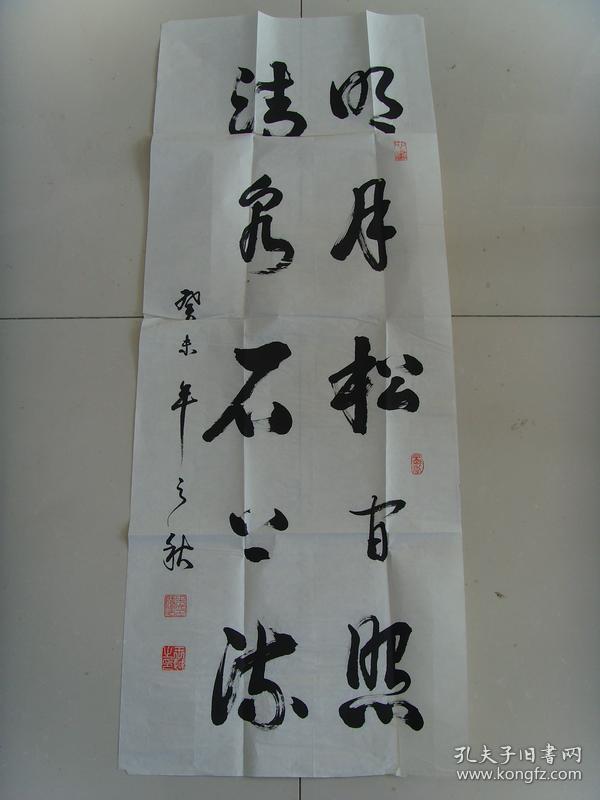 明月松间照
清泉石上流
癸未年之秋
孔夫子旧书网
www.kongfz.com